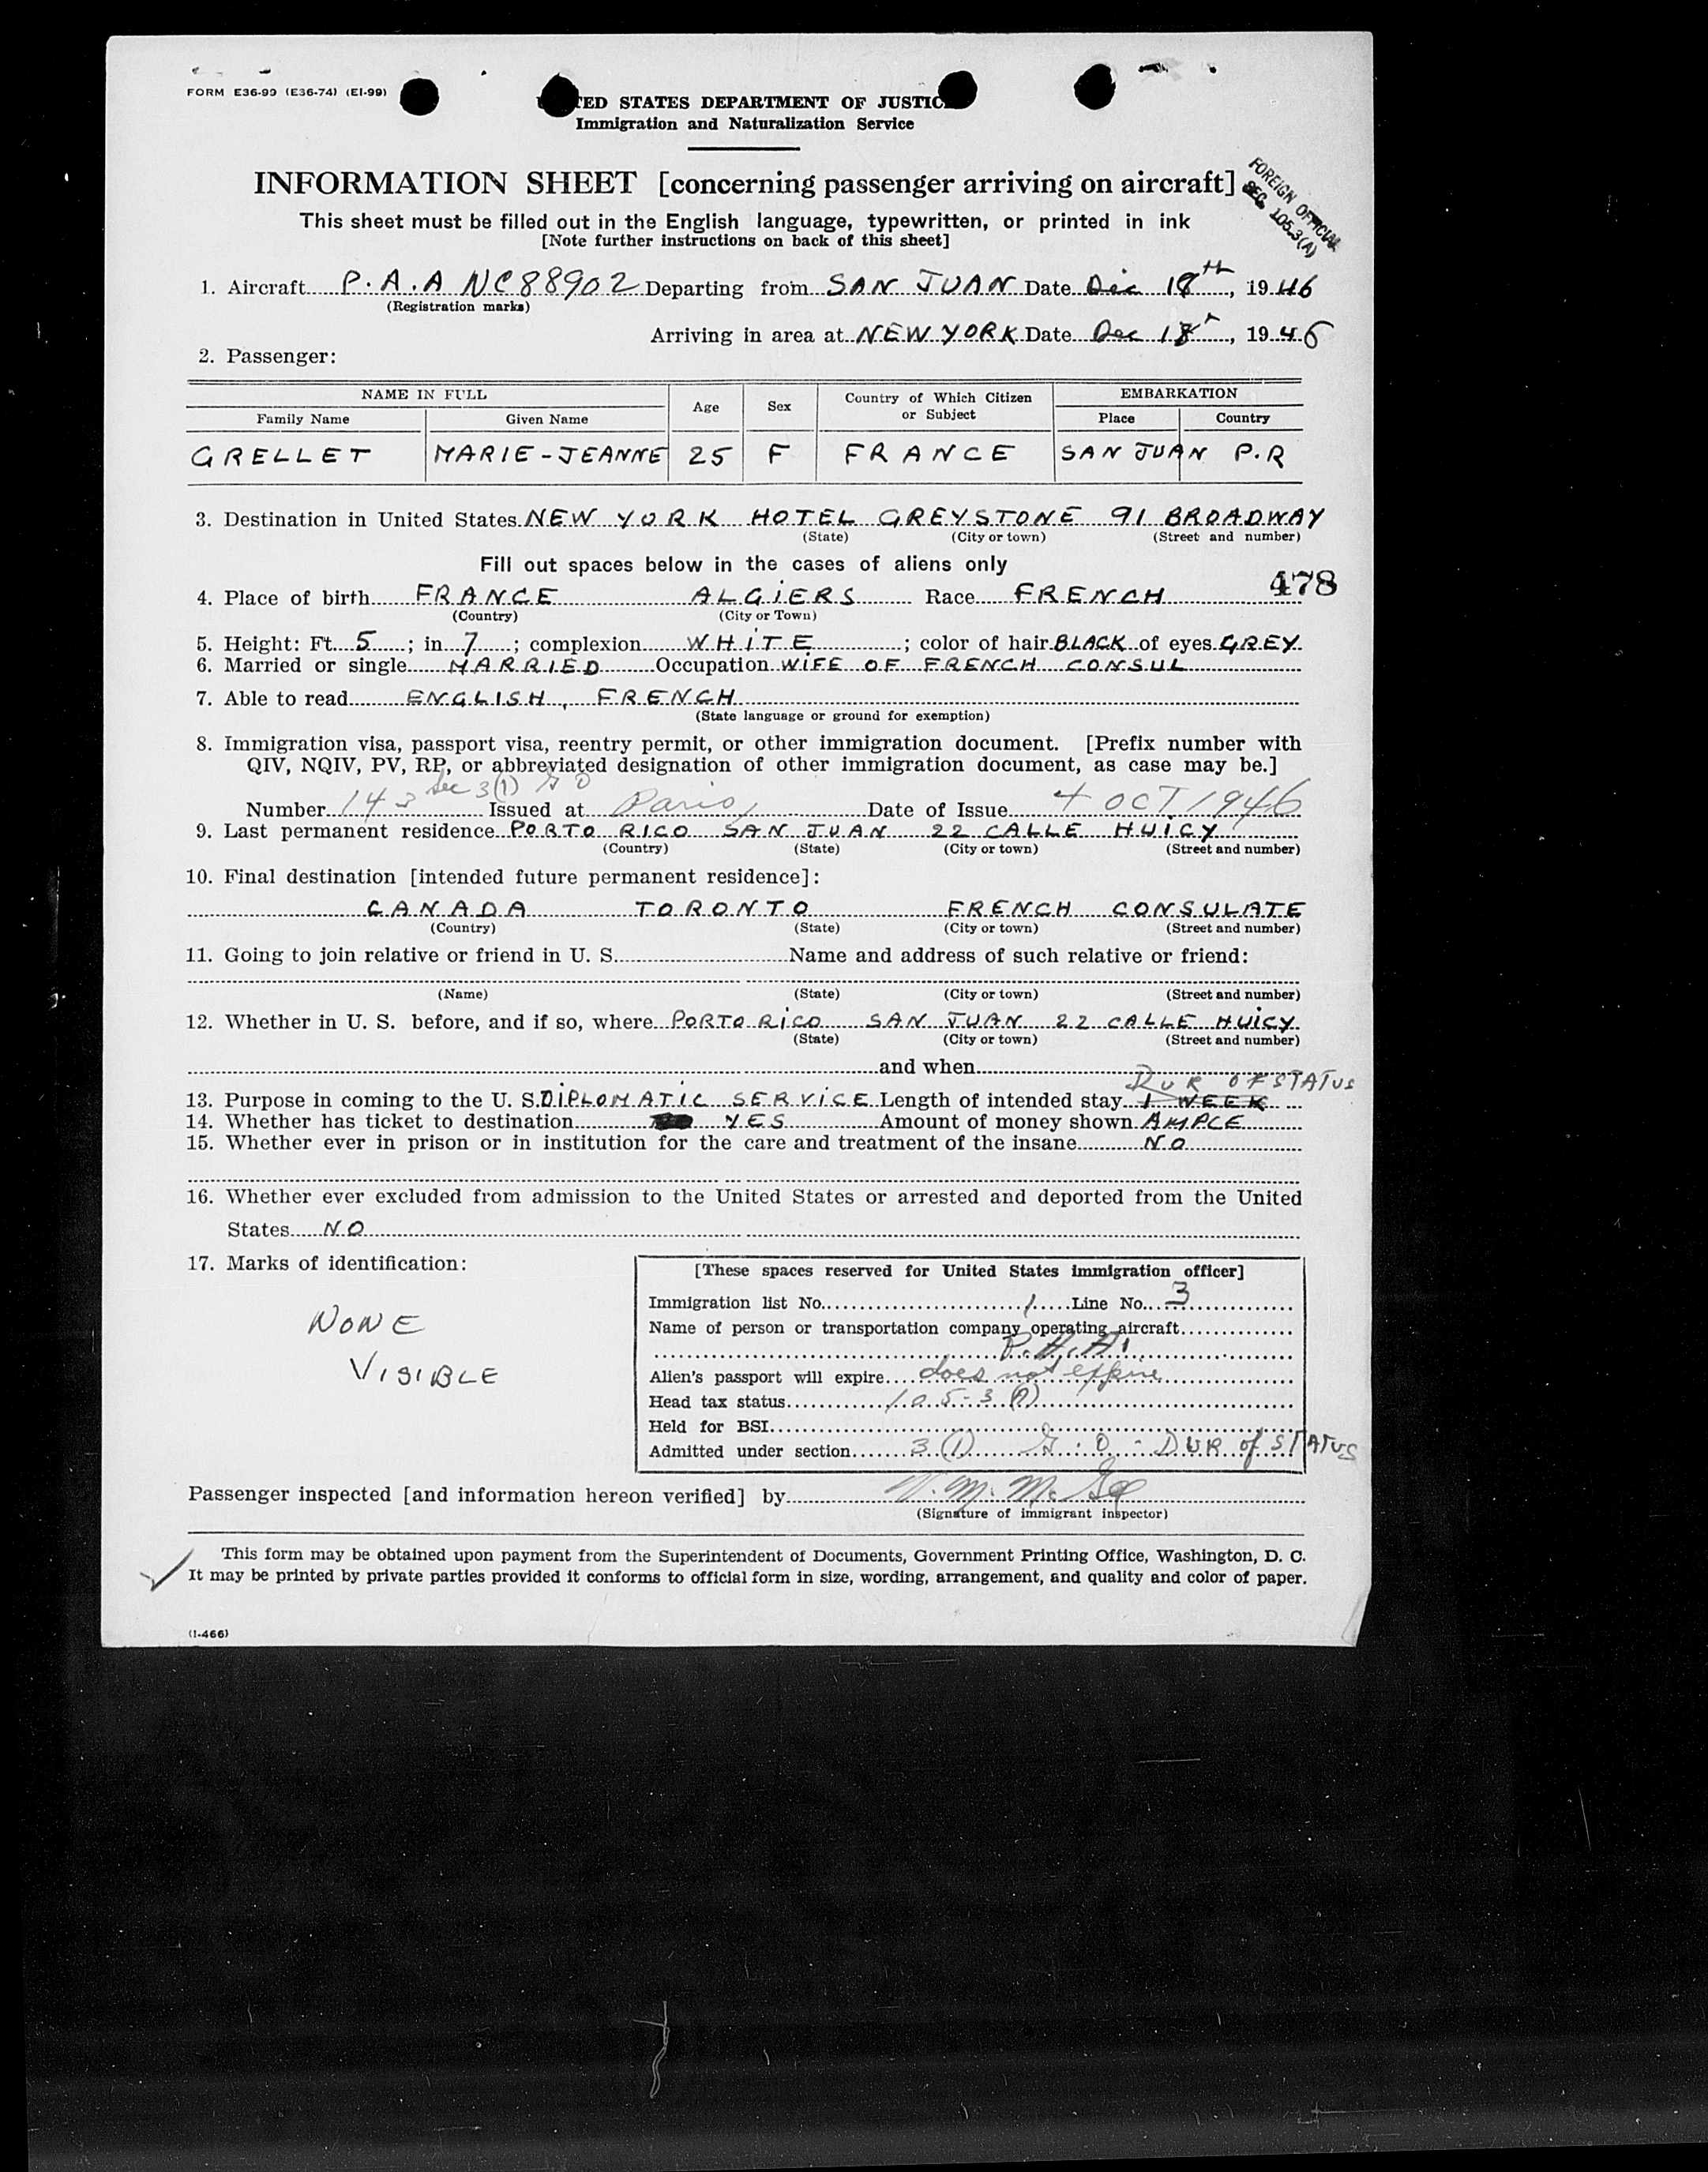 FORM E36-99 (E36-74) (EI-99)
TED STATES DEPARTMENT OF JUSTIC
Immigration and Naturalization Service
INFORMATION SHEET [concerning passenger arriving on aircraft]
FOREIGN OFFICIAL
SEC. 105.3(A)
This sheet must be filled out in the English language, typewritten, or printed in ink
[Note further instructions on back of this sheet]
1. Aircraft P.A.A NC88902 Departing from SAN JUAN Date Dec 18th, 1946
(Registration marks)
Arriving in area at NEW YORK Date Dec 18, 1946
2. Passenger:
NAME IN FULL Age Sex Country of Which Citizen or Subject EMBARKATION
Family Name Given Name Place Country
GRELLET MARIE-JEANNE 25 F FRANCE SAN JUAN P.R
3. Destination in United States NEW YORK HOTEL GREYSTONE 91 BROADWAY
(State) (City or town) (Street and number)
Fill out spaces below in the cases of aliens only
478
4. Place of birth FRANCE ALGIERS Race FRENCH
(Country) (City or Town)
5. Height: Ft. 5; in 7; complexion WHITE; color of hair BLACK of eyes GREY
6. Married or single MARRIED Occupation WIFE OF FRENCH CONSUL
7. Able to read ENGLISH, FRENCH
(State language or ground for exemption)
8. Immigration visa, passport visa, reentry permit, or other immigration document. [Prefix number with
QIV, NQIV, PV, RP, or abbreviated designation of other immigration document, as case may be.]
Sec 3(1) G O
Number 143 Issued at Paris, Date of Issue 4 OCT 1946
9. Last permanent residence PORTO RICO SAN JUAN 22 CALLE HUICY
(Country) (State) (City or town) (Street and number)
10. Final destination [intended future permanent residence]:
CANADA TORONTO FRENCH CONSULATE
(Country) (State) (City or town) (Street and number)
11. Going to join relative or friend in U. S. Name and address of such relative or friend:
(Name) (State) (City or town) (Street and number)
12. Whether in U. S. before, and if so, where PORTO RICO SAN JUAN 22 CALLE HUICY
(State) (City or town) (Street and number)
and when
DUR OF STATUS
13. Purpose in coming to the U. S. DIPLOMATIC SERVICE Length of intended stay 1 WEEK
14. Whether has ticket to destination YES Amount of money shown AMPLE
15. Whether ever in prison or in institution for the care and treatment of the insane NO
16. Whether ever excluded from admission to the United States or arrested and deported from the United
States NO
17. Marks of identification:
NONE
VISIBLE
[These spaces reserved for United States immigration officer]
Immigration list No. 1 Line No. 3
Name of person or transportation company operating aircraft
P.A.A.
Alien's passport will expire does not expire
Head tax status 105-3(A)
Held for BSI
Admitted under section 3(1) G.O - DUR of STATUS
Passenger inspected [and information hereon verified] by
(Signature of immigrant inspector)
This form may be obtained upon payment from the Superintendent of Documents, Government Printing Office, Washington, D. C.
It may be printed by private parties provided it conforms to official form in size, wording, arrangement, and quality and color of paper.
(I-466)